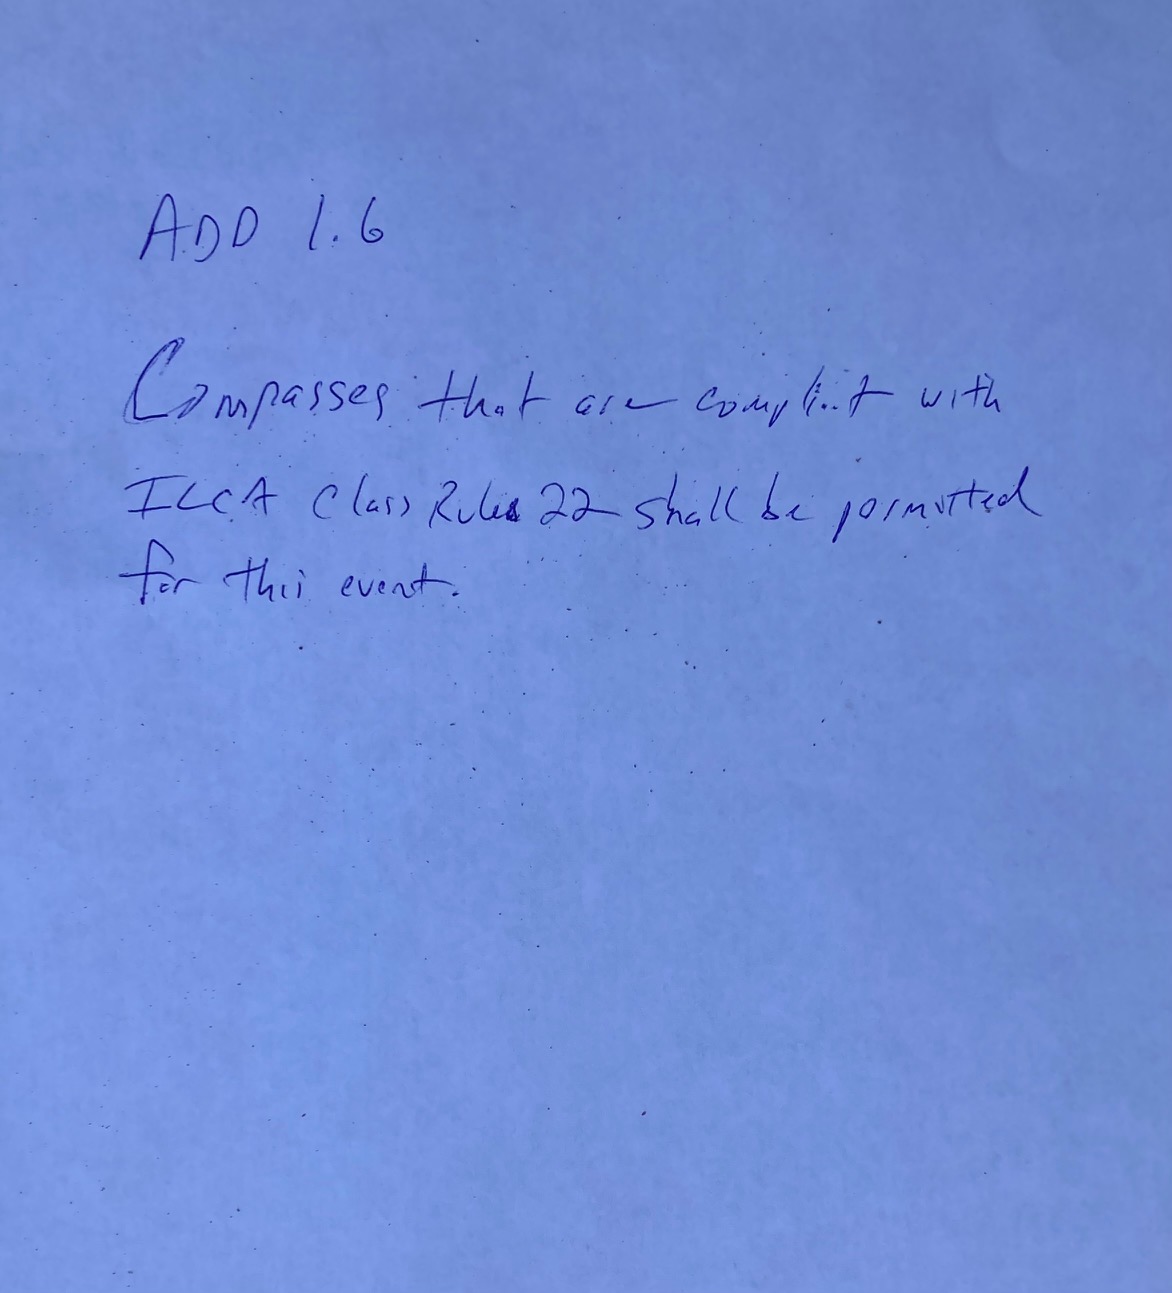 ADD 1.6
Compasses that are compliant with
ILCA Class Rules 22 shall be permitted
for this event.